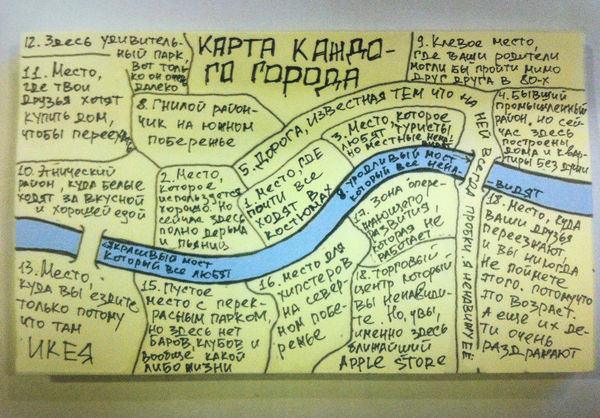 КАРТА КАЖДО-
ГО ГОРОДА
12. Здесь удивитель-
ный парк
Вот толь
ко он очень
далеко
11. Место,
где твои
друзья хотят
купить дом,
чтобы переехать
10. Этнический
район, куда белые
ходят за вкусной
и хорошей едой
8. Гнилой район-
чик на южном
побережье
9. Клевое место,
где ваши родители
могли бы пройти мимо
друг друга в 80-х
5. Дорога, известная тем что на
ней всегда пробки. Я ненавижу её
3. Место, которое
любят туристы
но местные нена-
видят
4. Бывший
промышленный
район, но сей-
час здесь
построены
дома и квар-
тиры без души
2. Место,
которое
используется
хорошо. Но
здесь
полно дерьма
и пьяниц
1. Место, где
почти все
ходят в
костюмах
уродливый мост
который все нена-
видят
Красивый мост
который все любят
17. Зона опере-
жающего
развития,
которая не
работает
18. Место, куда
ваши друзья
переезжают,
и вы никогда
не поймете
этого. потому что
это возраст.
А еще их де-
ти очень
раздражают
13. Место,
куда вы ездите
только потому
что там
ИКЕЯ
15. Пустое
место с перек-
расным парком,
но здесь нет
баров, клубов и
вообще какой
либо жизни
16. Место для
хипстеров
на север-
ном побе-
режье
18. Торговый
центр который
вы ненавиди-
те. Но, увы,
именно здесь
ближайший
Apple Store